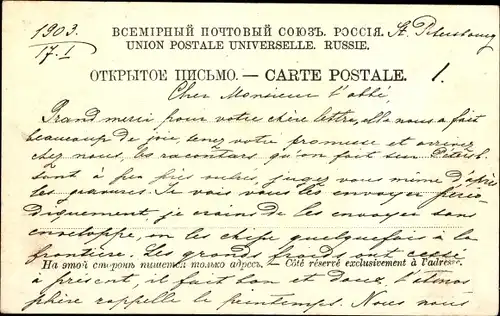 1903.
17. I
ВСЕМІРНЫЙ ПОЧТОВЫЙ СОЮЗЪ. РОССІЯ.
St. Petersbourg
UNION POSTALE UNIVERSELLE. RUSSIE.
ОТКРЫТОЕ ПИСЬМО. — CARTE POSTALE.
1.
Cher Monsieur l'abbé,
Grand merci pour votre chère lettre, elle nous a fait
beaucoup de joie, tenez votre promesse et arrivez
chez nous, les racontars qu'on fait sur Pétersb.
sont à peu près outrés, jugez vous même d'après
les gravures. Je vais vous les envoyer pério-
diquement, je crains de les envoyer sans
enveloppe, on les chipe quelquefois à la
frontière. Les grands froids ont cessé
На этой сторонѣ пишется только адресъ. — Côté réservé exclusivement à l'adresse.
à présent, il fait bon et doux, l'atmos-
phère rappelle le printemps. Nous nous